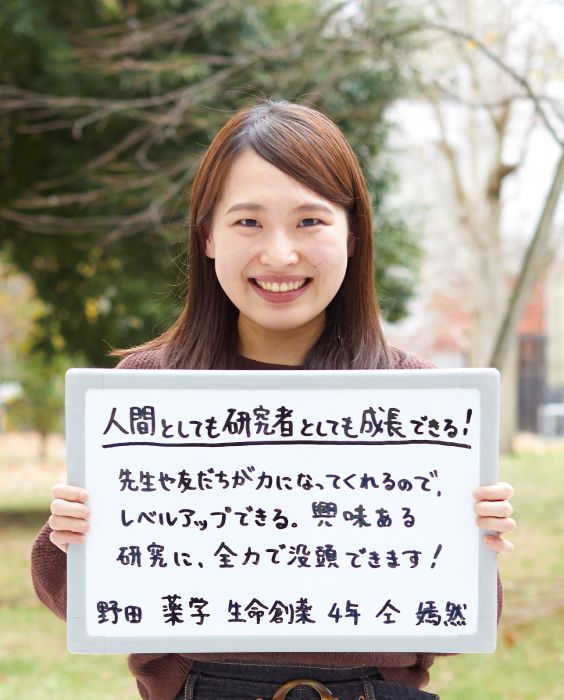 人間としても研究者としても成長できる!
先生や友だちが力になってくれるので、
レベルアップできる。興味ある
研究に、全力で没頭できます!
野田 薬学 生命創薬 4年 仝 嫣然